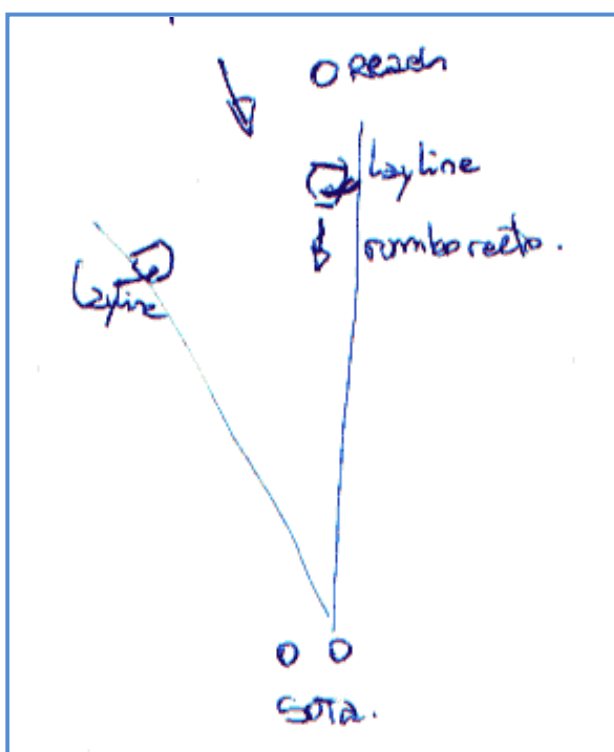 Reach
Layline
rumbo recto.
Layline
Sota.